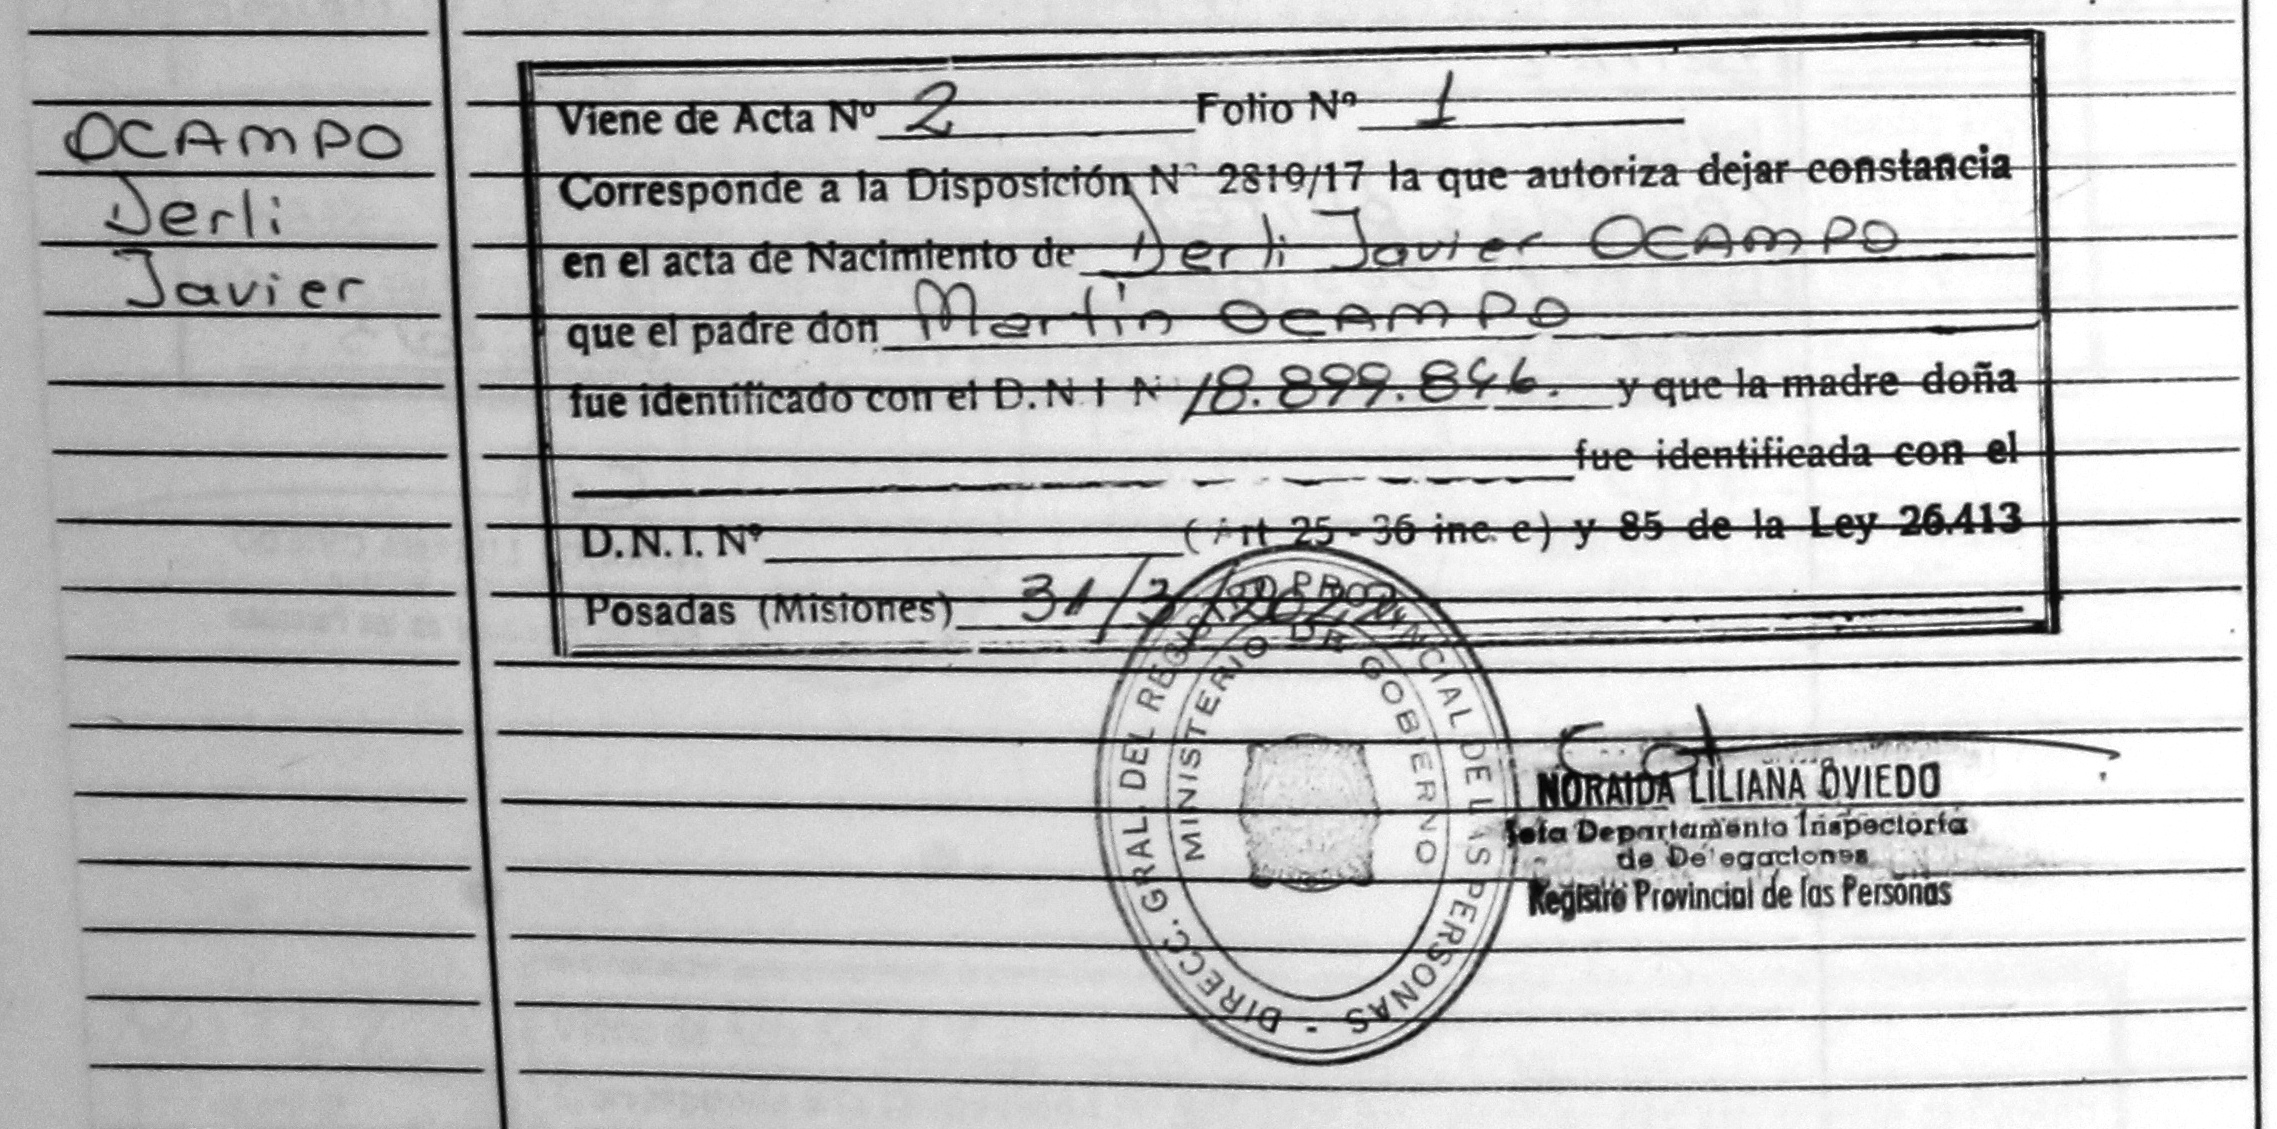 OCAMPO
Derli
Javier
Viene de Acta Nº 2 Folio Nº 1
Corresponde a la Disposición Nº 2819/17 la que autoriza dejar constancia
en el acta de Nacimiento de Derli Javier OCAMPO
que el padre don Martín OCAMPO
fue identificado con el D.N.I Nº 18.899.846. y que la madre doña
fue identificada con el
D.N.I. Nº (Art 25 - 36 inc. c) y 85 de la Ley 26.413
Posadas (Misiones) 31/3/2022
DIRECC. GRAL. DEL REGISTRO PROVINCIAL DE LAS PERSONAS -
MINISTERIO DE GOBIERNO
NORAIDA LILIANA OVIEDO
Jefa Departamento Inspectoría
de Delegaciones
Registro Provincial de las Personas